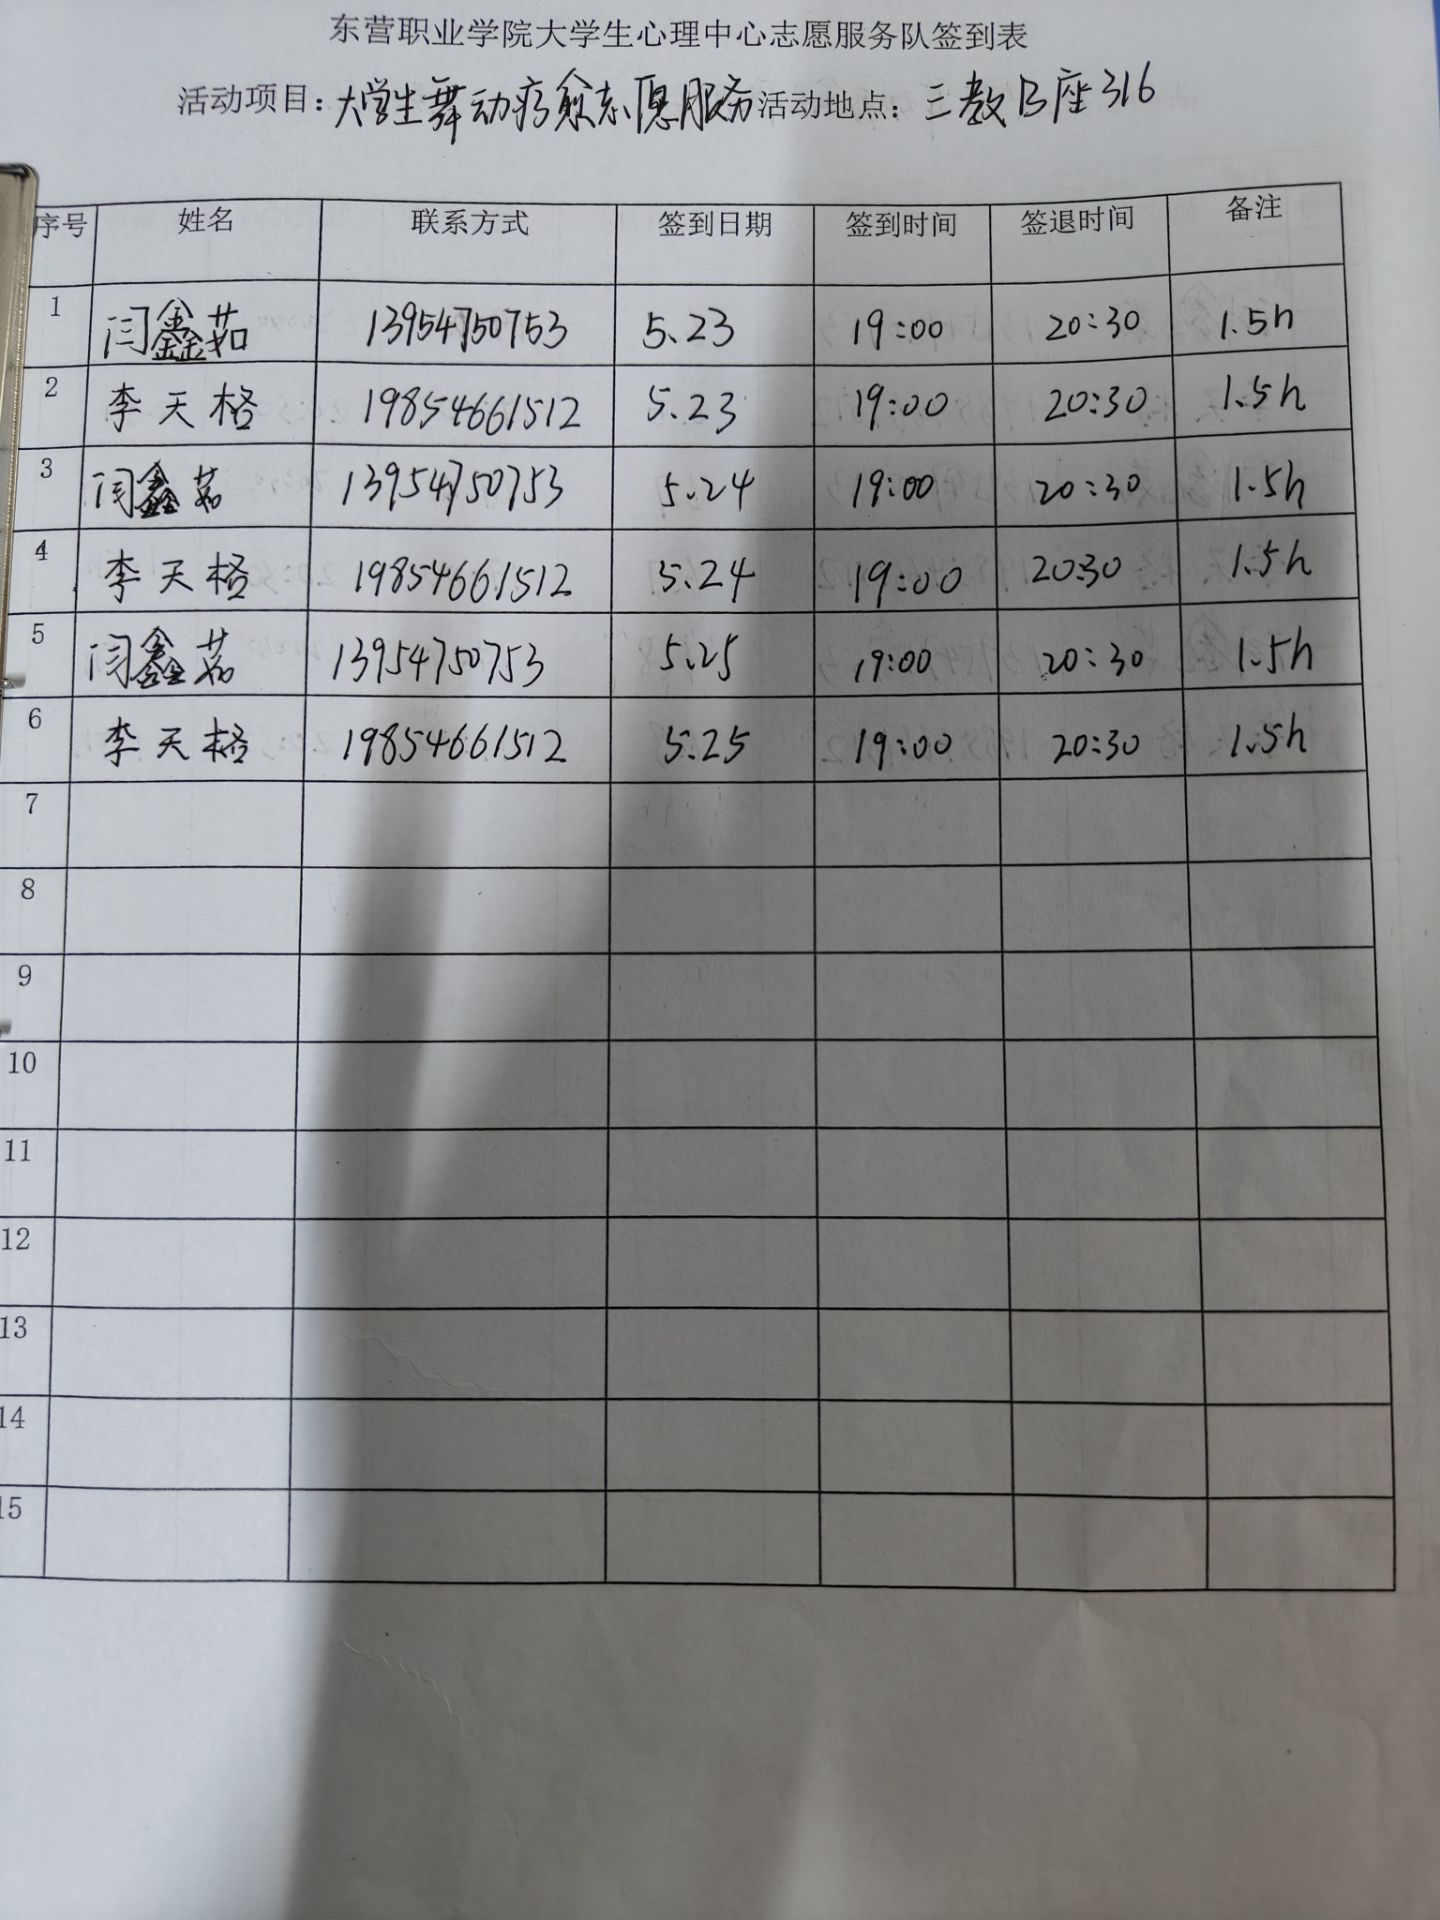 东营职业学院大学生心理中心志愿服务队签到表
活动项目：大学生舞动疗愈志愿服务活动地点：三教B座316
序号 姓名 联系方式 签到日期 签到时间 签退时间 备注
1 闫鑫茹 13954750753 5.23 19:00 20:30 1.5h
2 李天格 19854661512 5.23 19:00 20:30 1.5h
3 闫鑫茹 13954750753 5.24 19:00 20:30 1.5h
4 李天格 19854661512 5.24 19:00 20:30 1.5h
5 闫鑫茹 13954750753 5.25 19:00 20:30 1.5h
6 李天格 19854661512 5.25 19:00 20:30 1.5h
7
8
9
10
11
12
13
14
15